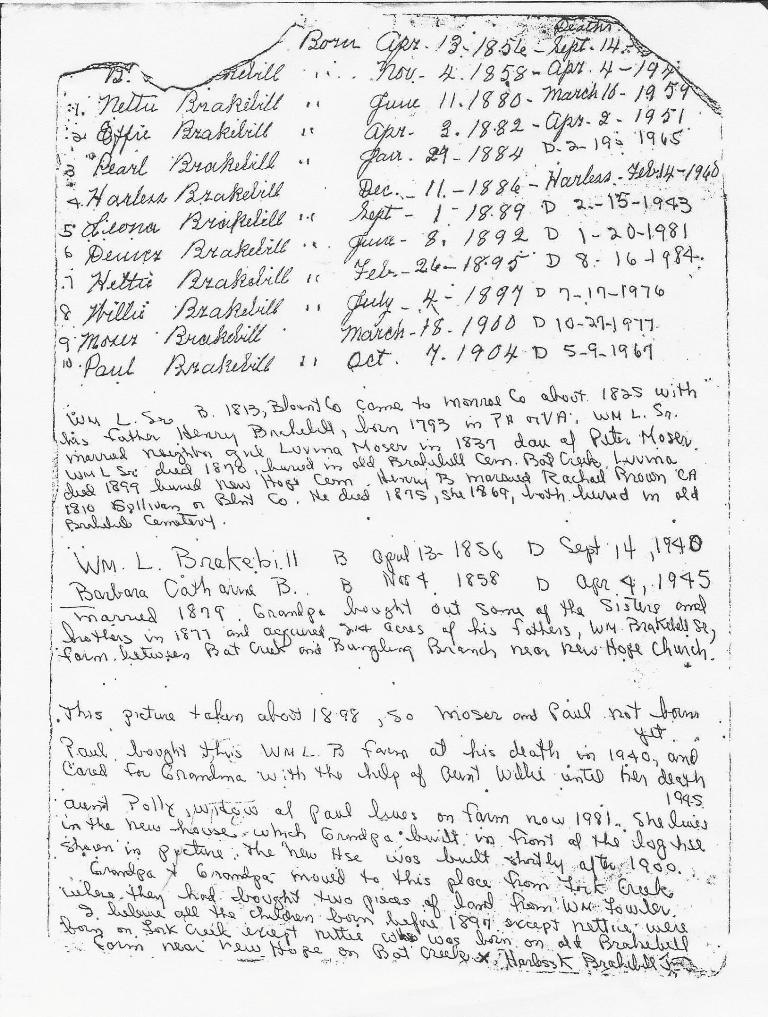 Deaths
Born Apr. 13-1856 - Sept-14-
B. ebill " Nov-4.1858- Apr. 4-194
1. Nettie Brakebill " June 11.1880- March 16- 1959
2 Effie Brakebill " Apr- 2.1882 - Apr.-2-1951
3 Pearl Brakebill " Jan. 29-1884 D-2-19- 1965
4 Harless Brakebill Dec.-11.-1886- Harless-Feb.14-1960
5 Leona Brakebill " Sept-1-1889 D 2-15-1943
6 Denver Brakebill " June-8.1892 D 1-20-1981
7 Hettie Brakebill " Feb.-26-1895 D 8-16-1984.
8 Willie Brakebill " July-4-1897 D 7-17-1976
9 Moser Brakebill " March-18-1900 D 10-27-1977
10 Paul Brakebill " Oct. 7.1904 D 5-9-1967
Wm L. Sr B. 1813, Blount Co came to Monroe Co about 1825 with
his father Henry Brakebill, born 1793 in PA or VA. Wm L. Sr.
married neighbor girl Luvina Moser in 1837 dau of Peter Moser.
Wm L Sr died 1878, buried in old Brakebill Cem. Bat Creek, Luvina
died 1899 buried New Hope Cem. Henry B married Rachael Brown CA
1810 Sullivan or Blnt Co. He died 1875, she 1869, both buried in old
Brakebill Cemetery.
WM. L. Brakebill B April 13- 1856 D Sept 14, 1940
Barbara Catharine B. B Nov 4 1858 D Apr 4, 1945
married 1879 Grandpa bought out some of the Sisters and
brothers in 1877 and acquired 214 acres of his fathers, Wm Brakebill Sr,
farm between Bat Creek and Bungling Branch near New Hope Church.
This picture taken about 1898, so Moser and Paul not born
yet.
Paul bought this Wm L. B farm at his death in 1940, and
cared for Grandma with the help of Aunt Willie until her death
1945
Aunt Polly, widow of Paul lives on farm now 1981. She lives
in the new house which Grandpa built in front of the log hse
shown in picture. The new Hse was built shortly after 1900.
Grandpa & Grandpa moved to this place from Fork Creek
where they had bought two pieces of land from Wm Fowler.
I believe all the children born before 1897 except Nettie were
born on Fork Creek except Nettie who was born on old Brakebill
farm near New Hope on Bat Creek x Harless K Brakebill Jr